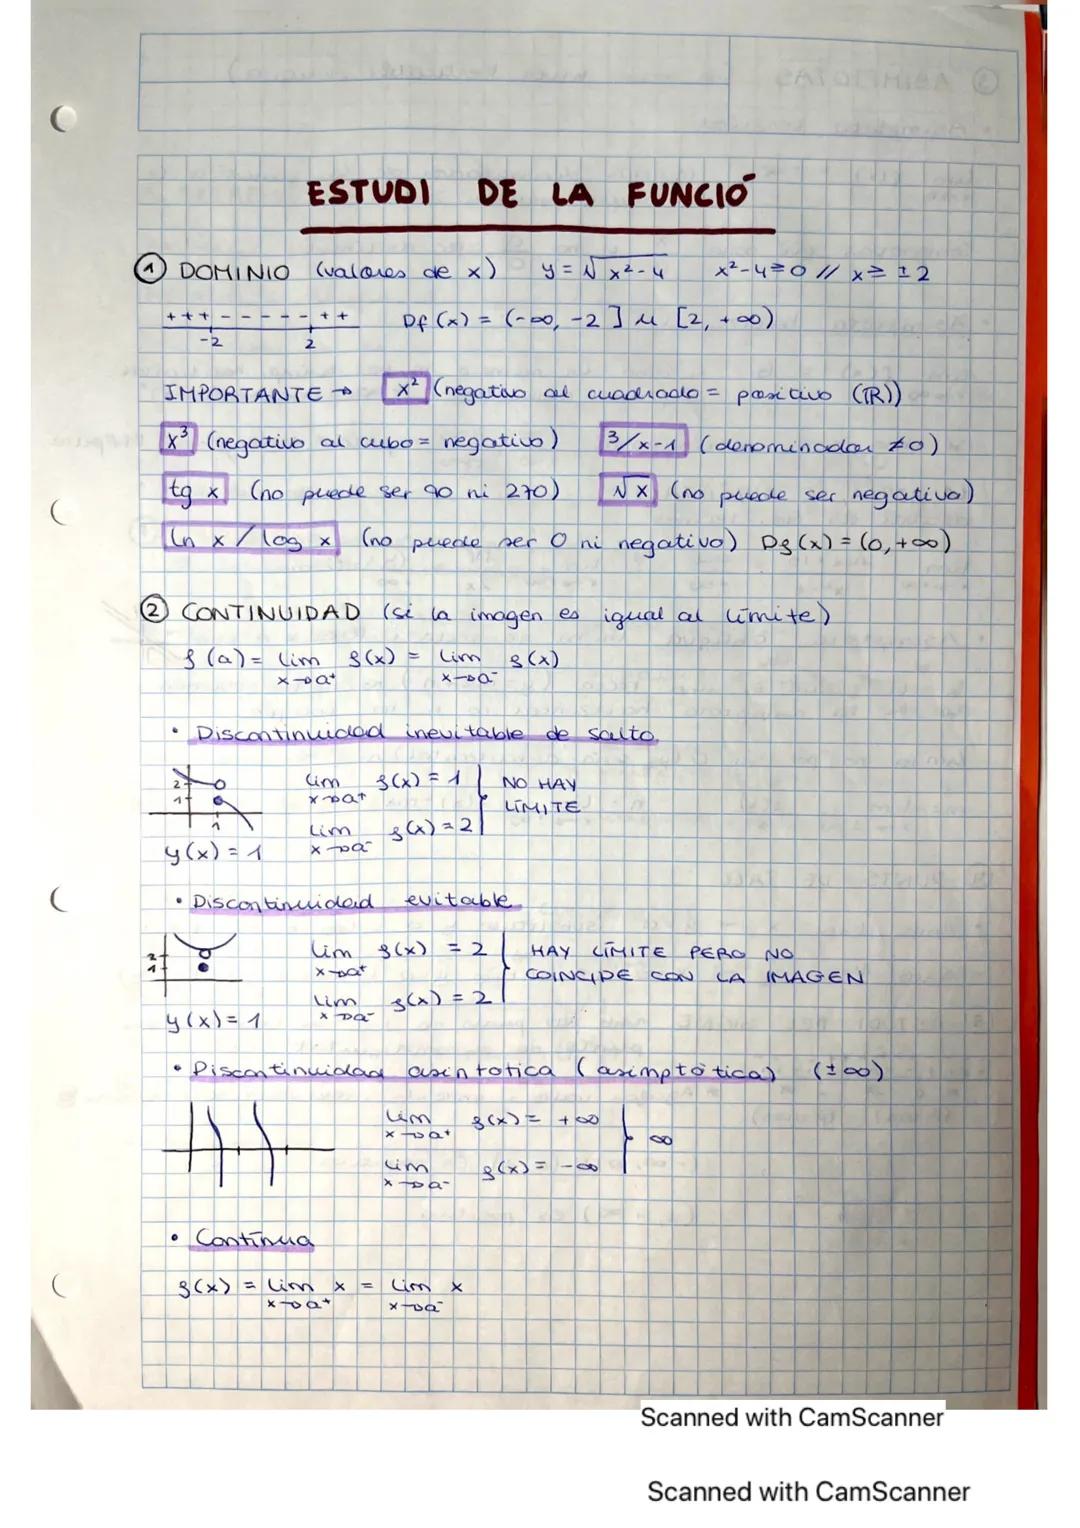 ESTUDI DE LA FUNCIÓ
1 DOMINIO (valores de x) y = √x²-4 x²-4≥0 // x≥ ±2
+++ - - - - - ++ Df (x) = (-∞, -2] u [2, +∞)
-2 2
IMPORTANTE → x² (negativo al cuadrado = positivo (ℝ))
x³ (negativo al cubo = negativo) 3/x-1 (denominador ≠0)
tg x (no puede ser 90 ni 270) √x (no puede ser negativa)
ln x / log x (no puede ser 0 ni negativo) Df(x) = (0,+∞)
2 CONTINUIDAD (si la imagen es igual al límite)
f (a) = lim f(x) = lim f(x)
x→a⁺ x→a⁻
• Discontinuidad inevitable de salto.
2 lim f(x) = 1 NO HAY
1 x→a⁺ LÍMITE
1 lim f(x) = 2
y(x) = 1 x→a⁻
• Discontinuidad evitable
2 lim f(x) = 2 HAY LÍMITE PERO NO
1 x→a⁺ COINCIDE CON LA IMAGEN
lim f(x) = 2
y(x) = 1 x→a⁻
• Discontinuidad asintotica (asimptòtica) (±∞)
lim f(x) = +∞
x→a⁺ ∞
lim f(x) = -∞
x→a⁻
• Contínua
f(x) = lim x = lim x
x→a⁺ x→a⁻
Scanned with CamScanner
Scanned with CamScanner